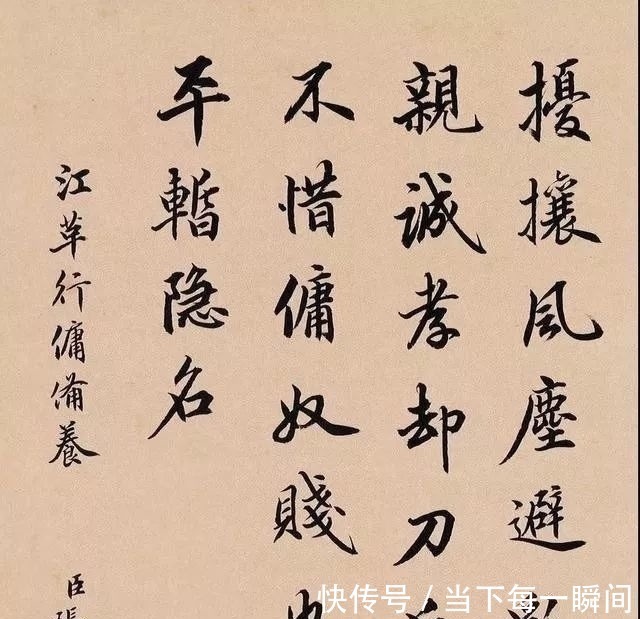 擾攘風塵避
親誠孝却刀
不惜傭奴賤
平暫隐名
江革行傭俻養
臣張
快传号 / 当下每一瞬间